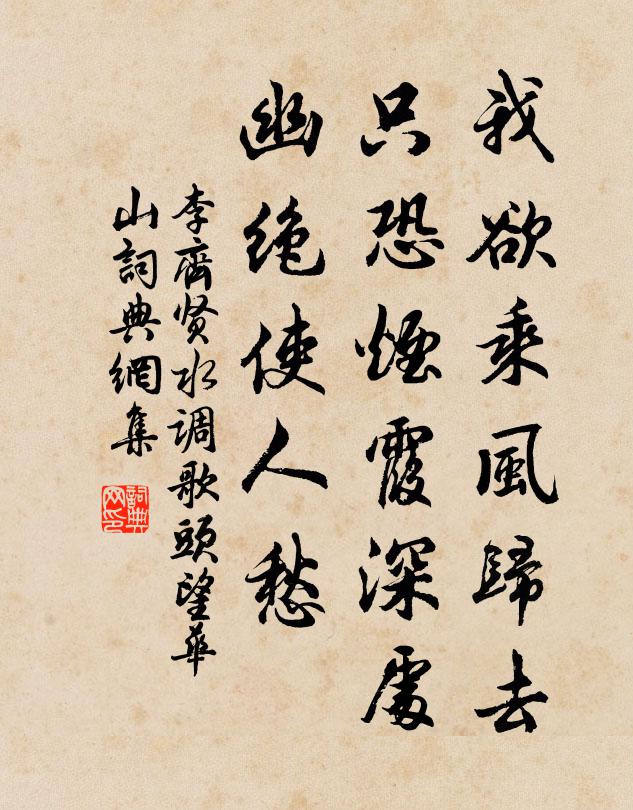 我欲乘風歸去
只恐煙霞深處
幽绝使人愁
李齊贤水调歌頭望華
山詞典網集
詞典网印